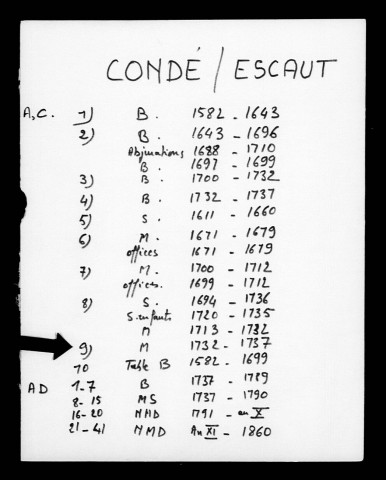 CONDÉ / ESCAUT
A.C. 1) B. 1582 - 1643
2) B. 1643 - 1696
Abjurations 1688 - 1710
B. 1697 - 1699
3) B. 1700 - 1732
4) B. 1732 - 1737
5) S. 1611 - 1660
6) M. 1671 - 1679
offices 1671 - 1679
7) M. 1700 - 1712
offices. 1699 - 1712
8) S. 1694 - 1736
S. enfants 1720 - 1735
M 1713 - 1732
9) M 1732 - 1737
10 Table B 1582 - 1699
AD 1-7 B 1737 - 1789
8-15 MS 1737 - 1790
16-20 NMD 1791 - an X
21-41 NMD An XI - 1860